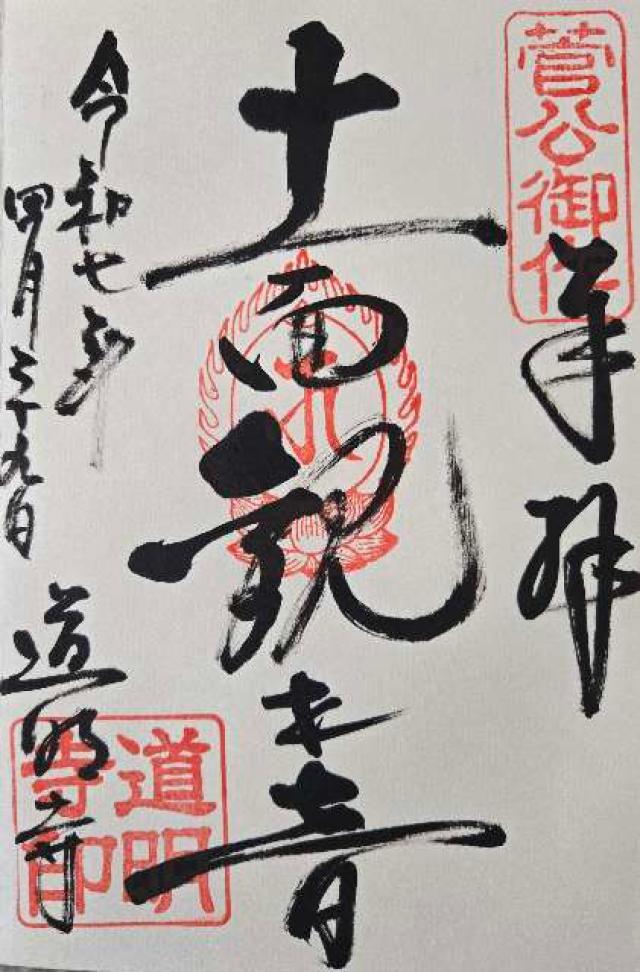 菅公御作
奉拝
十一面観世音
令和七年
四月二十九日
道明寺
道明寺印